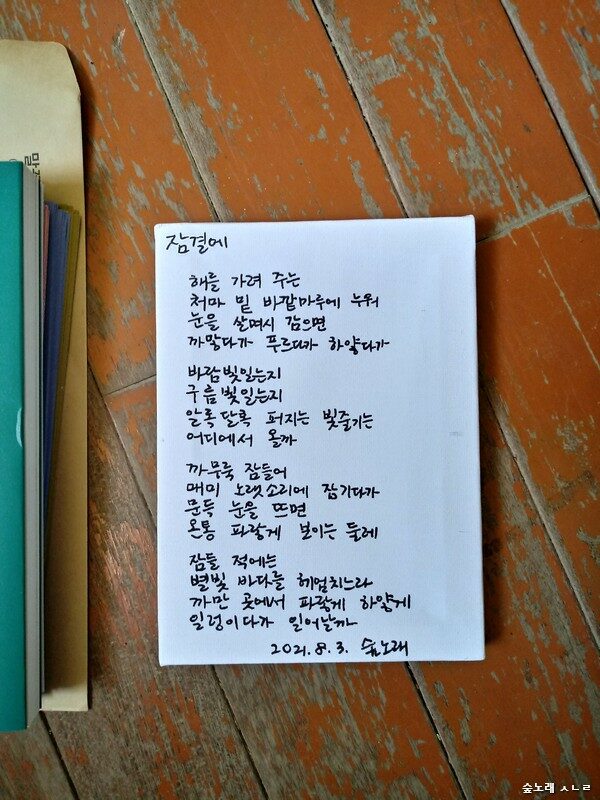 잠결에
해를 가려 주는
처마 밑 바깥마루에 누워
눈을 살며시 감으면
까맣다가 푸르다가 하얗다가
바람빛일는지
구름빛일는지
알록달록 퍼지는 빛줄기는
어디에서 올까
까무룩 잠들어
매미 노랫소리에 잠기다가
문득 눈을 뜨면
온통 파랗게 보이는 둘레
잠들 적에는
별빛 바다를 헤엄치느라
까만 곳에서 파랗게 하얗게
일렁이다가 일어날까
2021.8.3. 숲노래
숲노래 ㅅㄴㄹ